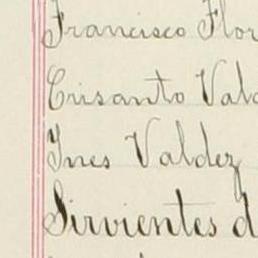 Francisco Flor
Crisanto Vald
Ines Valdez
Sirvientes d